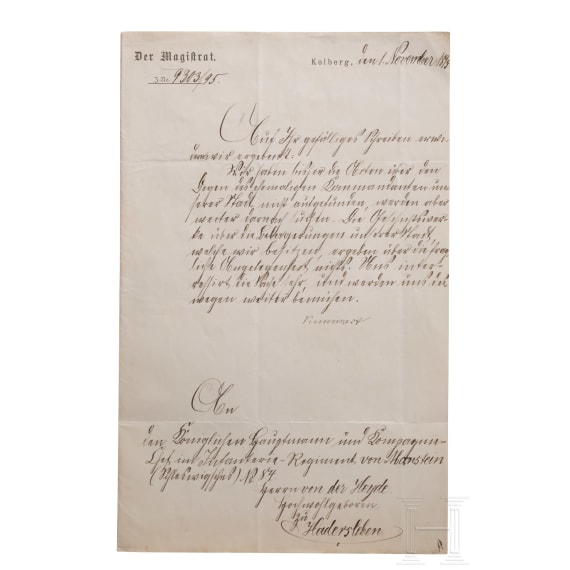 Der Magistrat.
J.-Nr. 9303/95.
Kolberg, den 1. November 1895
Auf Ihr gefälliges Schreiben erwi-
dern wir ergebenst:
Wir haben bisher die Akten über den
Degen des ehemaligen Kommandanten un-
serer Stadt nicht aufgefunden, werden aber
weiter darnach suchen. Die Geschichtswer-
ke über die Belagerungen unserer Stadt,
welche wir besitzen, ergeben über die frag-
liche Angelegenheit nichts. Uns inter-
essirt die Sache sehr, und werden uns des-
wegen weiter bemühen.
An
den Königlichen Hauptmann und Kompagnie-
Chef im Infanterie-Regiment von Manstein
(Schleswigsches) № 84
Herrn von der Heyde
Hochwohlgeboren
zu
Hadersleben
H